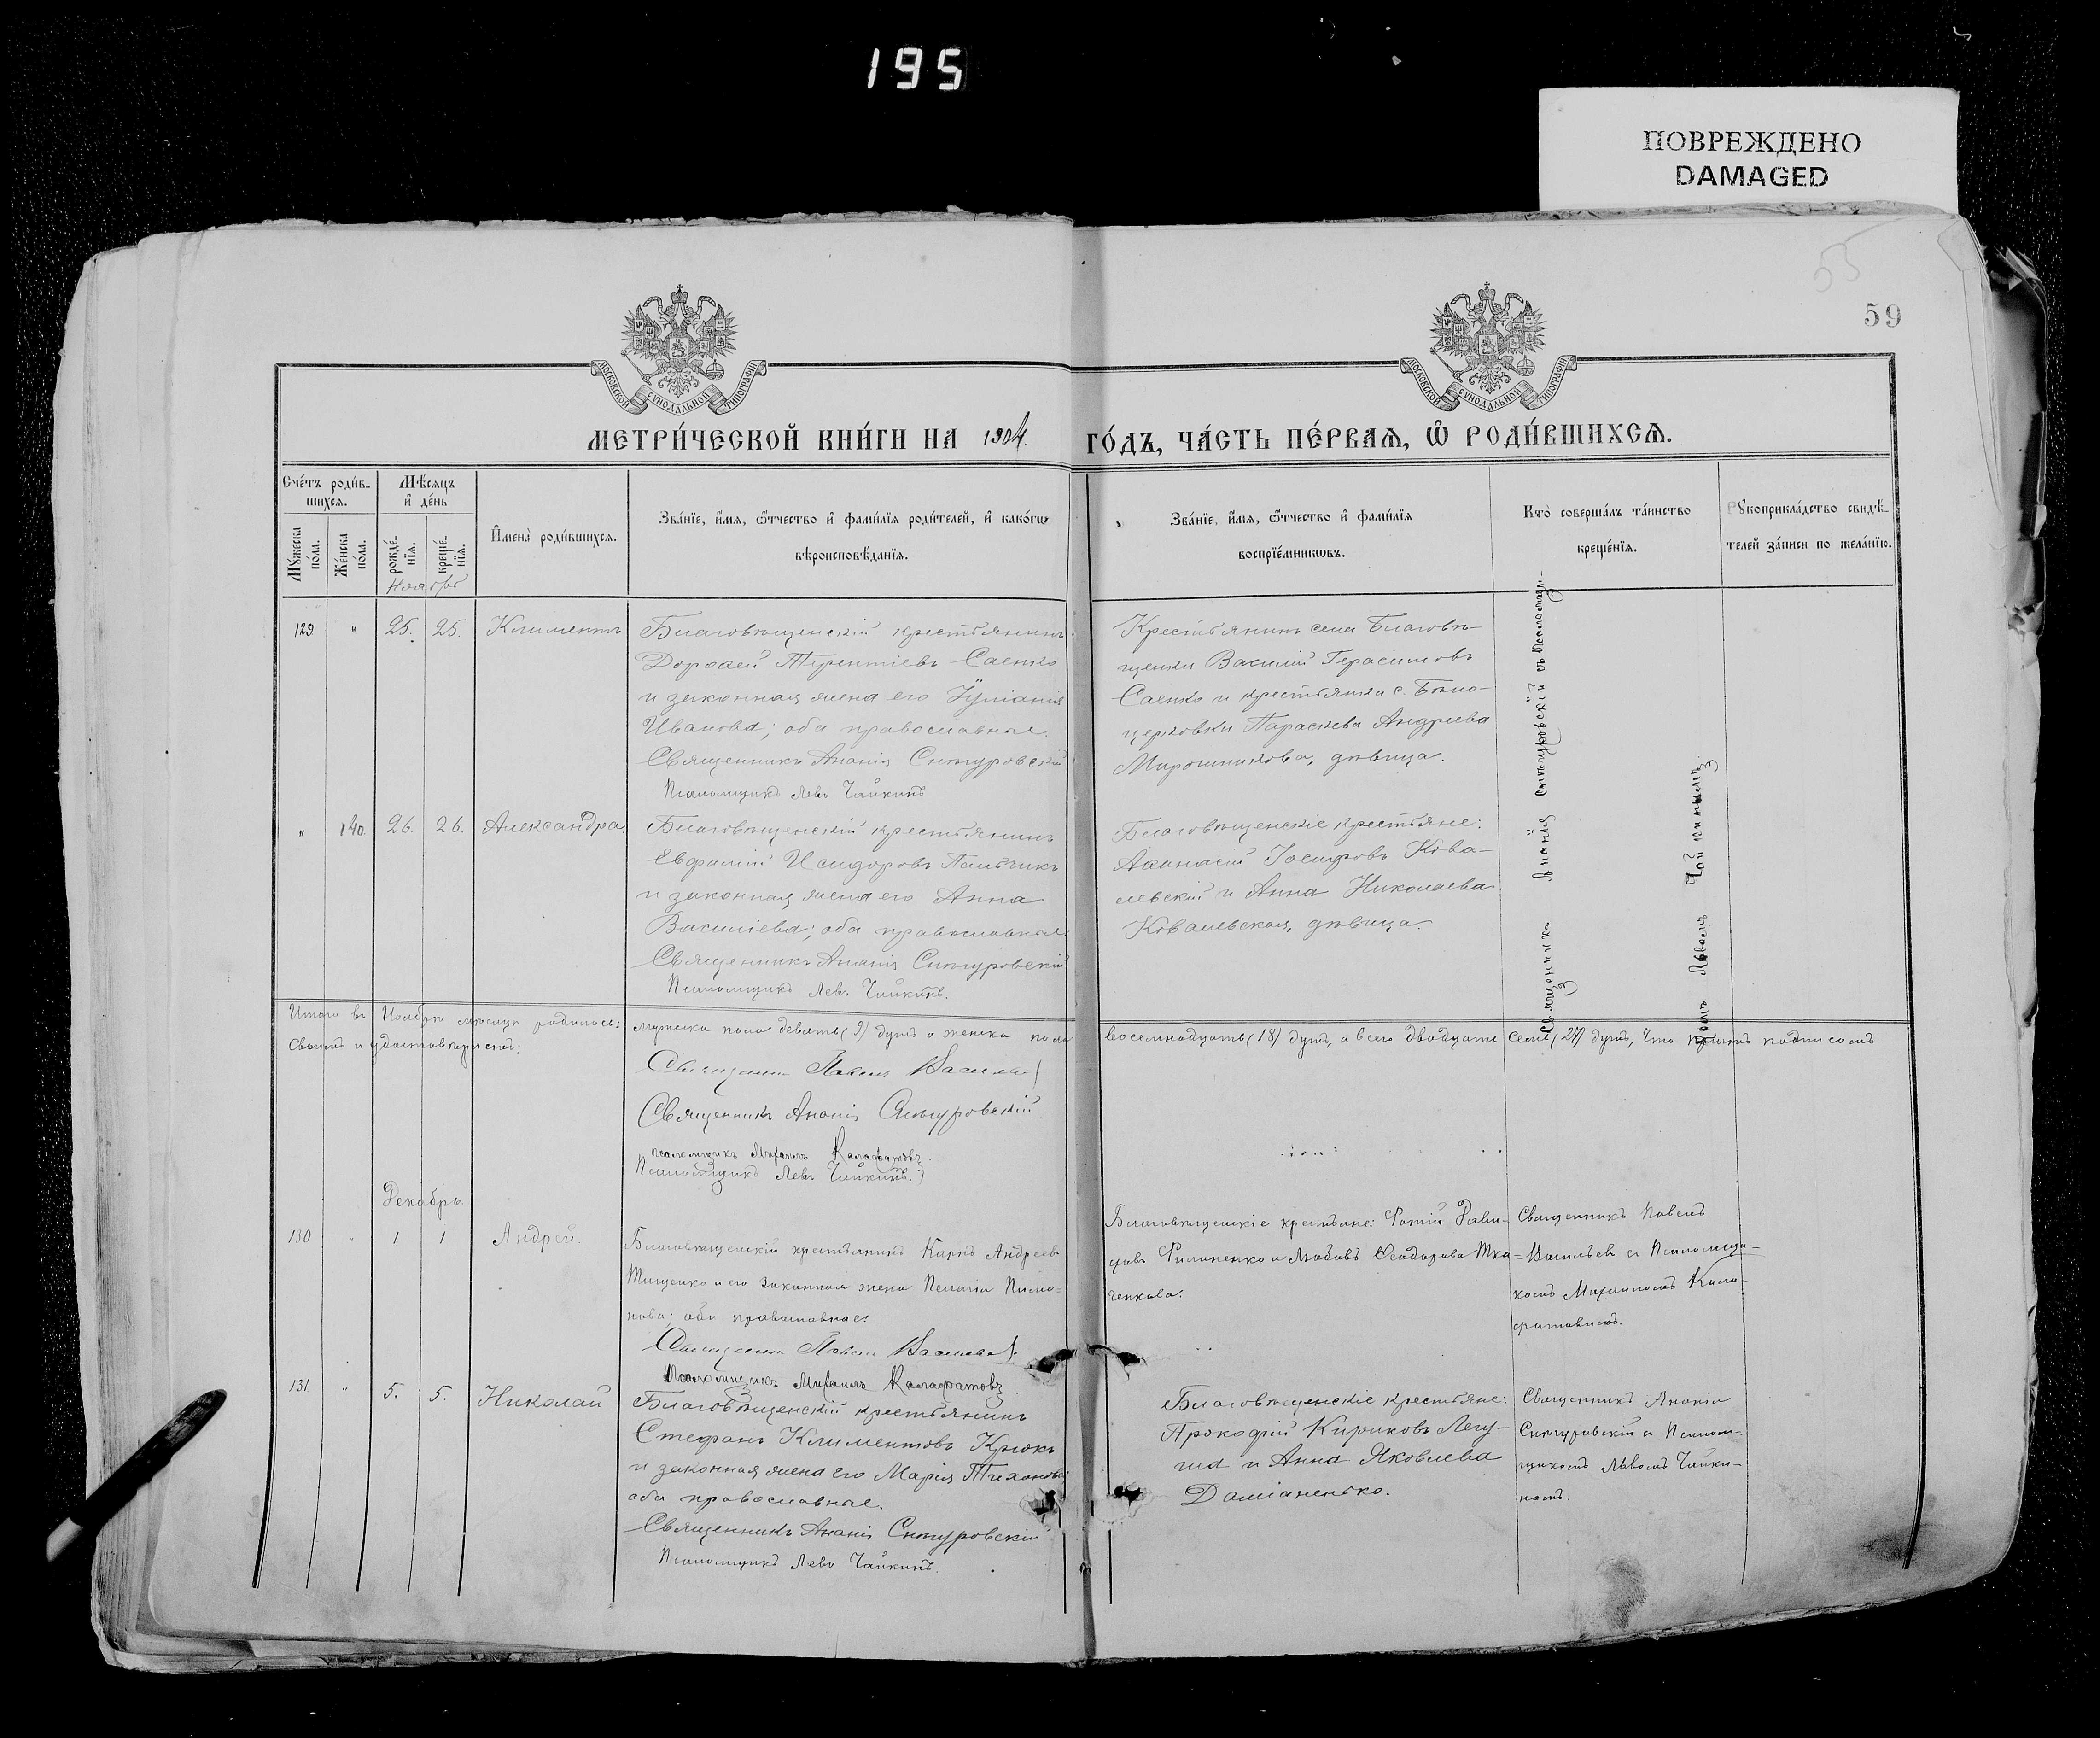 195
ПОВРЕЖДЕНО
DAMAGED
55
59
МОСКОВСКОЙ СѴНОДАЛЬНОЙ ТИПОГРАФІИ
МОСКОВСКОЙ СѴНОДАЛЬНОЙ ТИПОГРАФІИ
МЕТРИ́ЧЕСКОЙ КНИ́ГИ НА 1904.
ГО́ДЪ, ЧА́СТЬ ПЕ́РВАѦ, Ѽ РОДИ́ВШИХСѦ.
Сче́тъ роди́в-
шихсѧ.
Мꙋжеска по́ла.
Же́нска по́ла.
Мѣ́сѧцъ
и҆ де́нь
рожде́-
нїѧ.
креще́-
нїѧ.
И҆мена̀ роди́вшихсѧ.
Зва́нїе, и҆́мѧ, ѻ҆́тчество и҆ фами́лїѧ роди́телей, и҆ како́гѡ
вѣроисповѣ́данїѧ.
Зва́нїе, и҆́мѧ, ѻ҆́тчество и҆ фами́лїѧ
воспрїе́мникѡвъ.
Кто̀ соверша́лъ та́инство
креще́нїѧ.
Рꙋкоприкла́дство свидѣ́-
телей за́писи по жела́нїю.
Ноябрь
129. " 25. 25. Климентъ
Благовѣщенскій крестьянинъ
Дороѳей Терентіевъ Саенко
и законная жена его Іуліанія
Иванова; оба православные.
Священникъ Ананія Снѣгуровскій
Псаломщикъ Левъ Чайкинъ
Крестьянинъ села Благовѣ-
щенки Василій Герасимовъ
Саенко и крестьянка с. Бѣло-
церковки Параскева Андреева
Мирошникова, дѣвица.
Священникъ Ананія Снѣгуровскій съ Псаломщи-
комъ Львомъ Чайкинымъ
" 140. 26. 26. Александра.
Благовѣщенскій крестьянинъ
Евфимій Исидоровъ Пальчикъ
и законная жена его Анна
Василіева; оба православные
Священникъ Ананія Снѣгуровскій
Псаломщикъ Левъ Чайкинъ.
Благовѣщенскіе крестьяне:
Аѳанасій Іосифовъ Кова-
левскій и Анна Николаева
Ковалевская, дѣвица.
Итого въ Ноябрѣ мѣсяцѣ родилось: мужска пола девять (9) душъ а женска пола восемнадцать (18) душъ, а всего двадцать семь (27) душъ, что
своимъ и удостовѣряемъ: подписомъ
Священникъ Павелъ Васильев
Священникъ Ананія Снѣгуровскій
псаломщикъ Михаилъ Калафатовъ.
Псаломщикъ Левъ Чайкинъ.
Декабрь.
130 " 1 1 Андрей.
Благовѣщенскій крестьянинъ Карпъ Андреевъ
Тищенко и его законная жена Пелагія Пимо-
нова; оба православные.
Священникъ Павелъ Васильев
Псаломщикъ Михаилъ Калафатовъ
Благовѣщенскіе крестьяне: Фотій Дави-
довъ Филипенко и Любовь Ѳеодорова Тка-
ченкова.
Священникъ Павелъ
Васильев съ Псаломщи-
комъ Михаиломъ Кала-
фатовымъ.
131. " 5. 5. Николай
Благовѣщенскій крестьянинъ
Стефанъ Климентовъ Крюкъ
и законная жена его Марія Тихонова
оба православные.
Священникъ Ананія Снѣгуровскій
Псаломщикъ Левъ Чайкинъ.
Благовѣщенскіе крестьяне:
Прокофій Кириковъ Легу-
ша и Анна Яковлева
Даміаненко.
Священникъ Ананія
Снѣгуровскій съ Псалом-
щикомъ Львомъ Чайки-
нымъ.